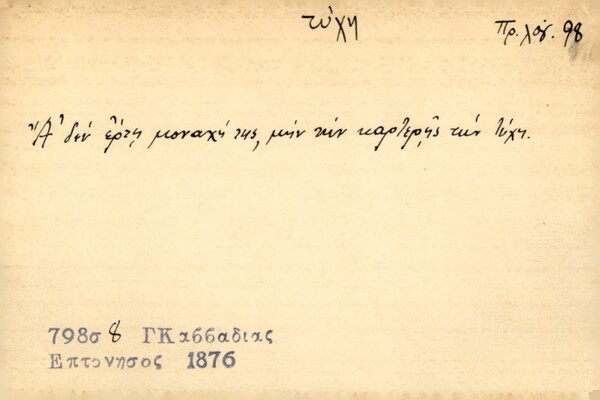 τύχη
Πρ. λόγ. 98
Ἂ δὲν ἔρτῃ μοναχή της, μὴν τὴν καρτερῇς τὴν τύχη.
798σ 8 ΓΚαββαδιας
Επτονησος 1876